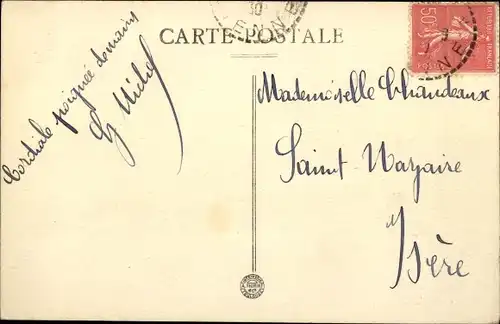 CARTE-POSTALE
50c
Cordiale poignée de mains
Mademoiselle Chandeaux
Saint-Nazaire
Isère